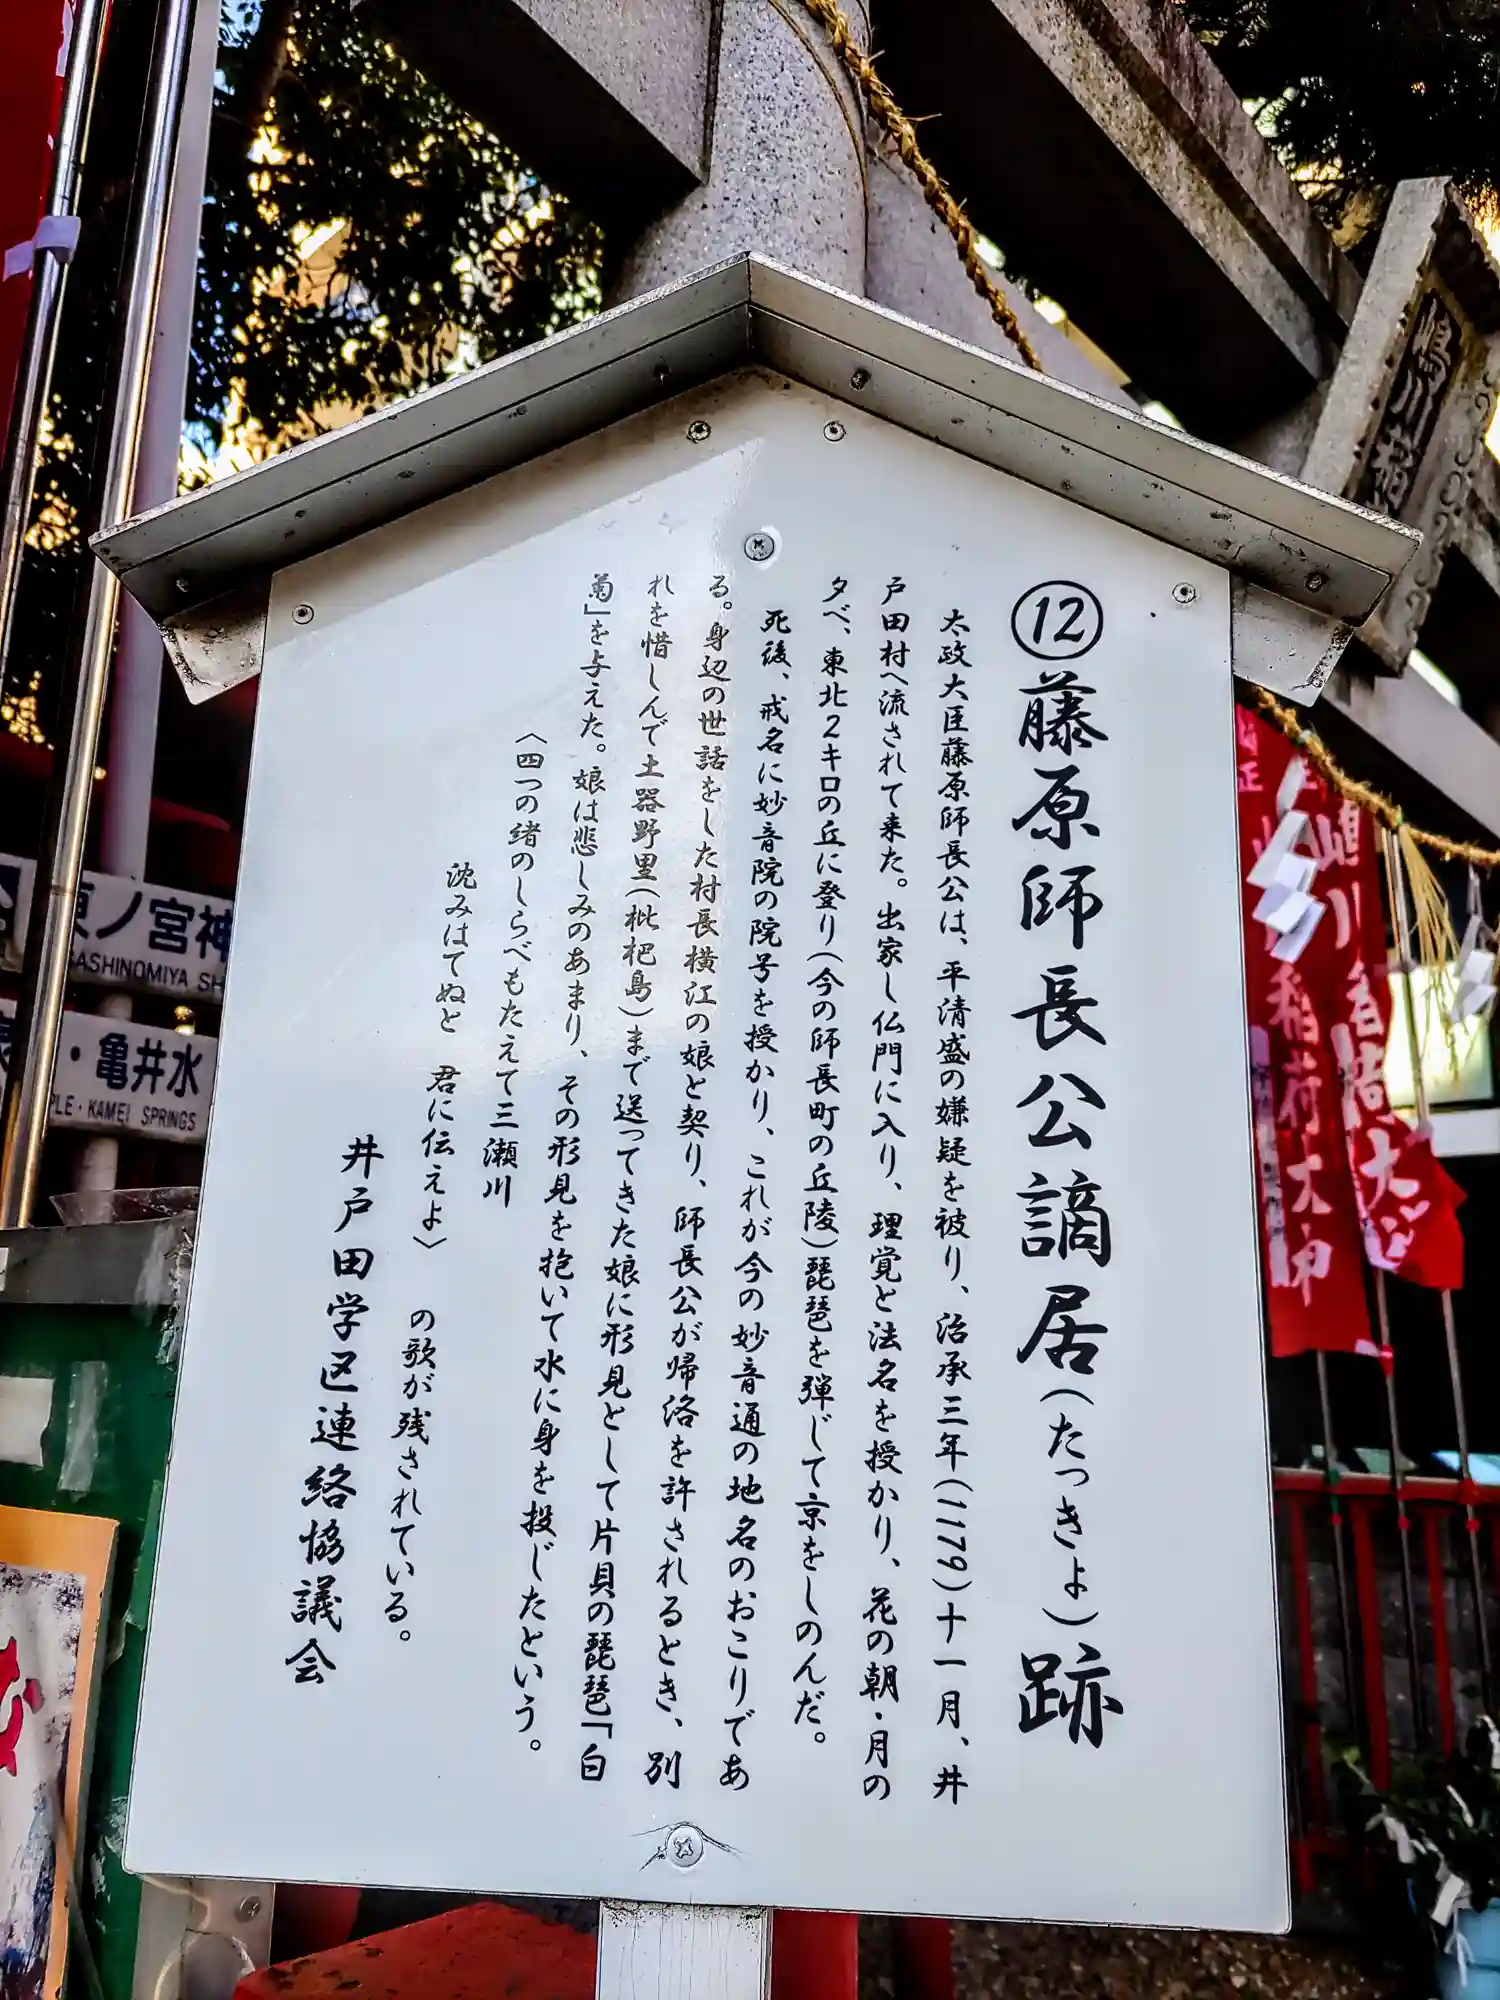 ⑫藤原師長公謫居(たっきょ)跡
太政大臣藤原師長公は、平清盛の嫌疑を被り、治承三年(1179)十一月、井
戸田村へ流されて来た。出家し仏門に入り、理覚と法名を授かり、花の朝・月の
夕べ、東北2キロの丘に登り(今の師長町の丘陵)琵琶を弾じて京をしのんだ。
死後、戒名に妙音院の院号を授かり、これが今の妙音通の地名のおこりであ
る。身辺の世話をした村長横江の娘と契り、師長公が帰洛を許されるとき、別
れを惜しんで土器野里(枇杷島)まで送ってきた娘に形見として片貝の琵琶「白
菊」を与えた。娘は悲しみのあまり、その形見を抱いて水に身を投じたという。
〈四つの緒のしらべもたえて三瀬川
沈みはてぬと 君に伝えよ〉 の歌が残されている。
井戸田学区連絡協議会
ノ宮神
ASHINOMIYA SH
・亀井水
PLE・KAMEI SPRINGS
川稲
稲荷大神
川
大